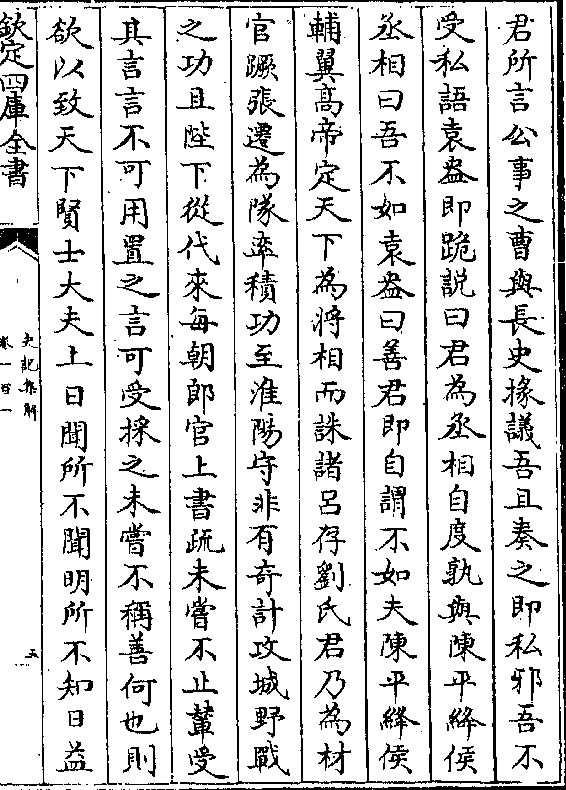 君所言公事之曹與長史掾議吾且奏之即私邪吾不
受私語袁盎即跪說曰君為丞相自度孰與陳平絳侯
丞相曰吾不如袁盎曰善君即自謂不如夫陳平絳侯
輔翼髙帝定天下為將相而誅諸呂存劉氏君乃為材
官蹶張遷為隊率積功至淮陽守非有奇計攻城野戰
之功且陛下從代來每朝郎官上書疏未嘗不止輦受
其言言不可用置之言可受採之未嘗不稱善何也則
欲以致天下賢士大夫上日聞所不聞明所不知日益
欽定四庫全書
史記集解
卷一百一
五